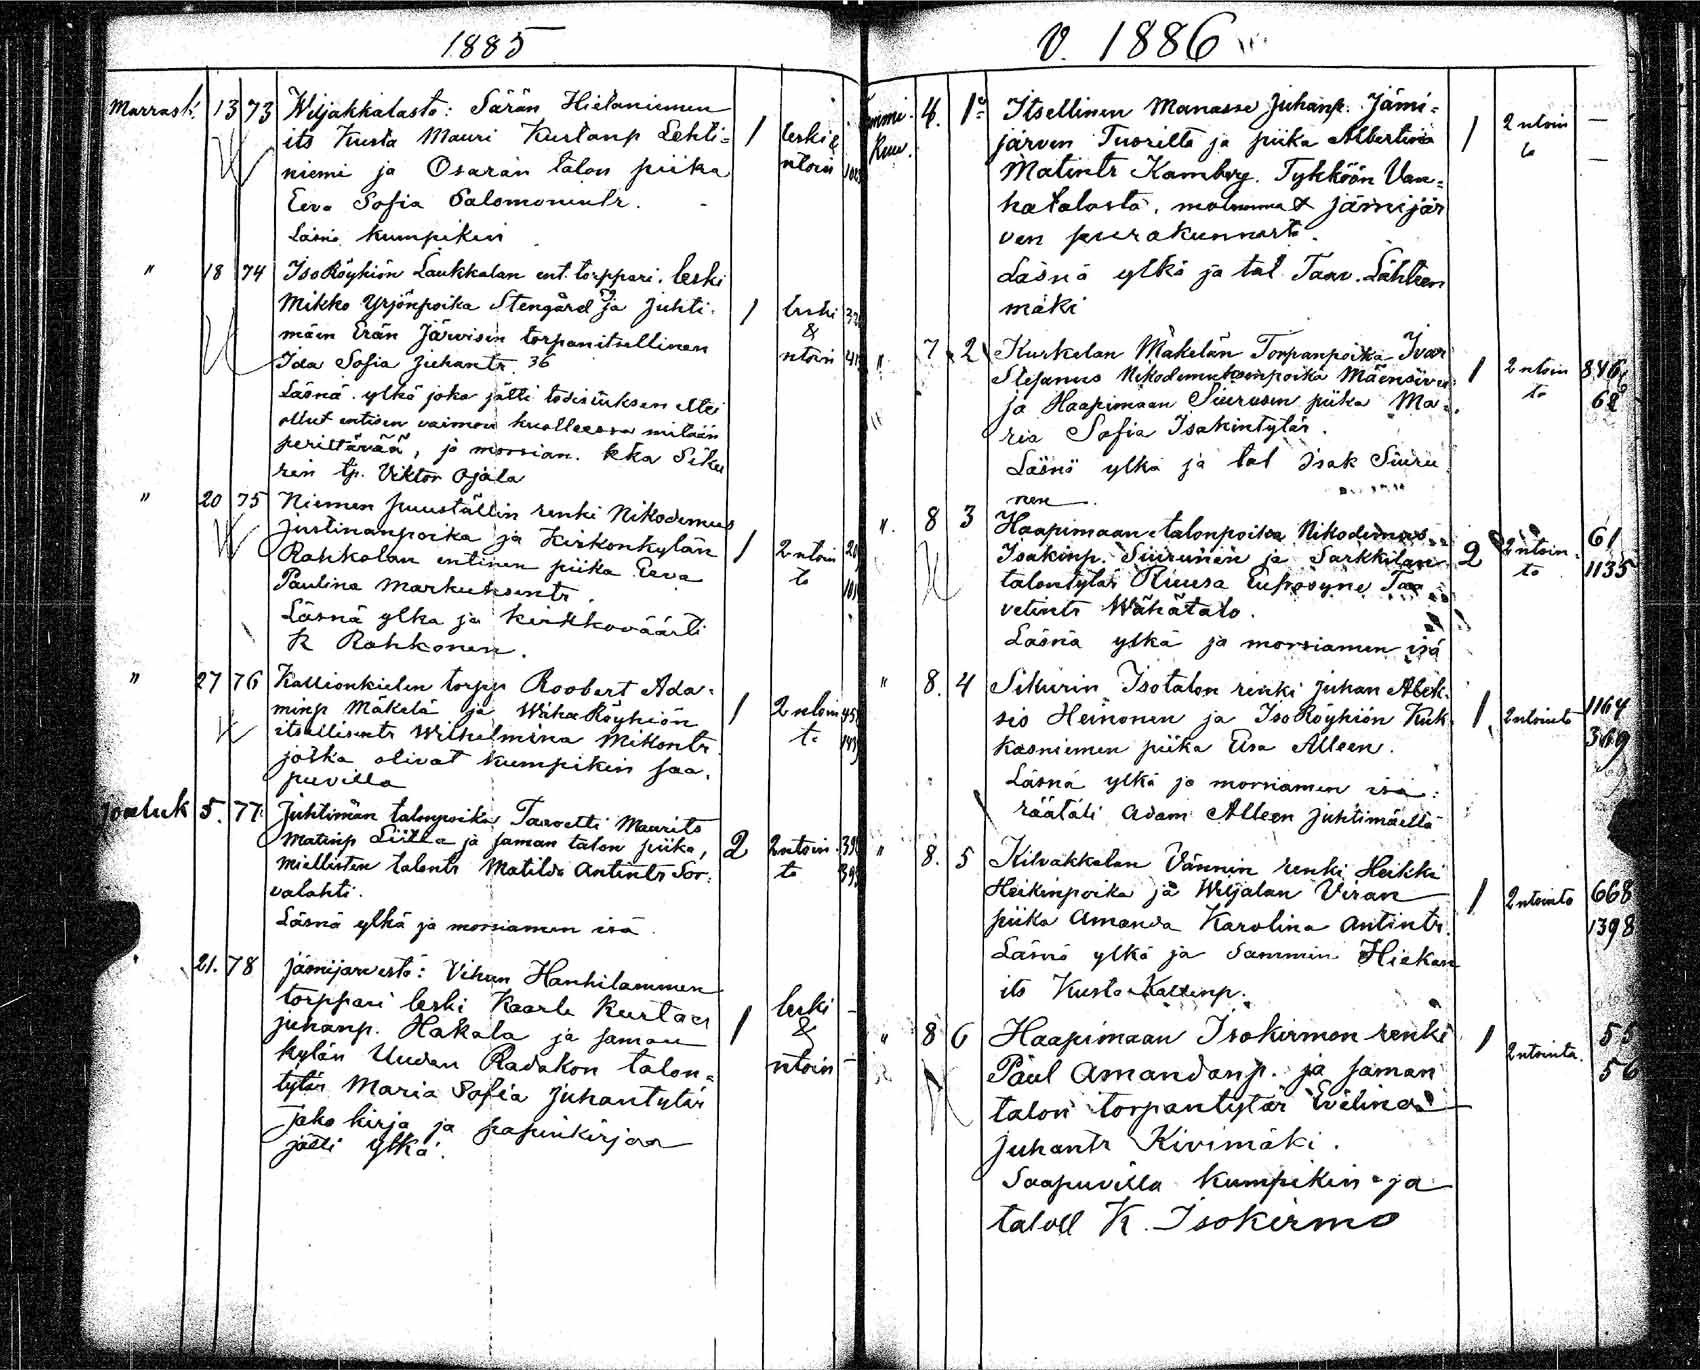 1885
Marrask. 13 73 Wiljakkalasta: Särän Hietaniemen
its Kusta Mauri Kustanp Lehti= 1 leski &
niemi ja Osaran talon piika ntoin
Eeva Sofia Salomonintr.
Läsnä kumpikin
" 18 74 Iso Röyhiön Laukkalan ent. torppari, leski
Mikko Yrjönpoika Stengård ja Juhti- 1 leski
mäen Erän Järvisen torpan itsellinen &
Ida Sofia Juhantr. 36 ntoin
Läsnä ylkä joka jätti todistuksen ettei
ollut entisen vaimon kuolleessa mitään
perittävää, ja morsian. kka Siku
ren tp. Viktor Ojala
" 20 75 Niemen Juustallin renki Nikodemus
Justinanpoika ja Kirkonkylän 1 2 ntoin
Rahkolan entinen piika Eeva to
Paulina Markuksentr.
Läsnä ylkä ja kirkkoväärti
K Rahkonen.
" 27 76 Kallionkielen torpp Roobert Ada=
minp Mäkelä ja Wähä Röyhiön 1 2 ntoin
itsellisentr Wilhelmina Mikontr. to
jotka olivat kumpikin saa.
puvilla
Jouluk 5. 77. Juhtimän talonpoika Taavetti Maurits
Matinp Liilla ja saman talon piika, 2 2 ntoin.
Miettisten talontr Matilda Antintr Sor= to
valahti.
Läsnä ylkä ja morsiamen isä.
21. 78 Jämijärveltä: Vihun Hanhilammen
torppari leski Kaarle Kustaa leski
Juhanp. Hakala ja saman 1 &
kylän Uudan Radakon talon= ntoin
tytär Maria Sofia Juhantytär
Jakokirja ja papinkirjan
jätti ylkä.
v. 1886
Tammi- 4. 1. Itsellinen Manasse Juhanp. Jämi= 2 ntoin —
kuu. järven Tuorilta ja piika Albertina 1 to —
Matintr Kamberg. Tykköön Van=
hatalosta, Jämijär
ven seurakunnasta.
Läsnä ylkä ja tal. Taav. Lähteen
mäki
". 7 2 Kurkelan Mäkelän Torpanpoika Ivar
Stefanus Nikodemuksenpoika Mäensivu 1 2 ntoin 846
ja Haapimaan Siurusen piika Ma= to 62
ria Sofia Isakintytär.
Läsnä ylkä ja tal Isak Siuru
nen.
". 8 3 Haapimaan talonpoika Nikodemus
Isakinp. Siurunen ja Sarkkilan 2 2 ntoin 61
talontytär Riuusa Eufrosyne Taa= to 1135
vetintr Wähätalo.
Läsnä ylkä ja morsiamen isä
" 8. 4 Sikurin Isotalon renki Juhan Alek-
sis Heinonen ja Iso Röyhiön Kuk- 1 2 ntointo 1164
kasniemen piika Eva Alleen. 369
Läsnä ylkä ja morsiamen isä:
räätäli Adam Alleen Juhtimäeltä
" 8. 5 Kilvakkalan Vännin renki Heikki
Heikinpoika ja Wiljalan Viran 1 2 ntointo 668
piika Amanda Karolina Antintr. 1398
Läsnä ylkä ja Sammin Hiekan
its Kusta Kallenp.
" 8 6 Haapimaan Isokirmon renki 1 55
Paul Amandanp. ja saman 2 ntointa. 56
talon torpantytär Evelina
Juhantr Kivimäki.
Saapuvilla kumpikin ja
taloll K. Isokirmo